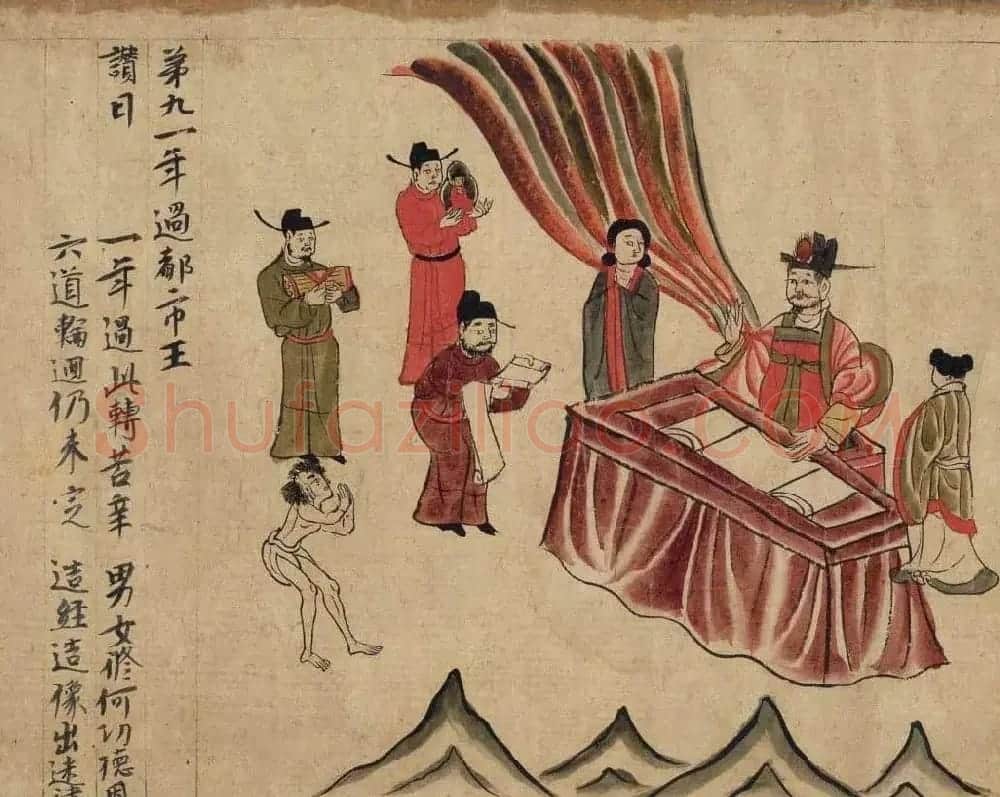 弟九一年過都市王
讚曰 一年過此轉苦辛 男女修何功德
六道輪迴仍未定 造經造像出迷
Shufaziliao.COM